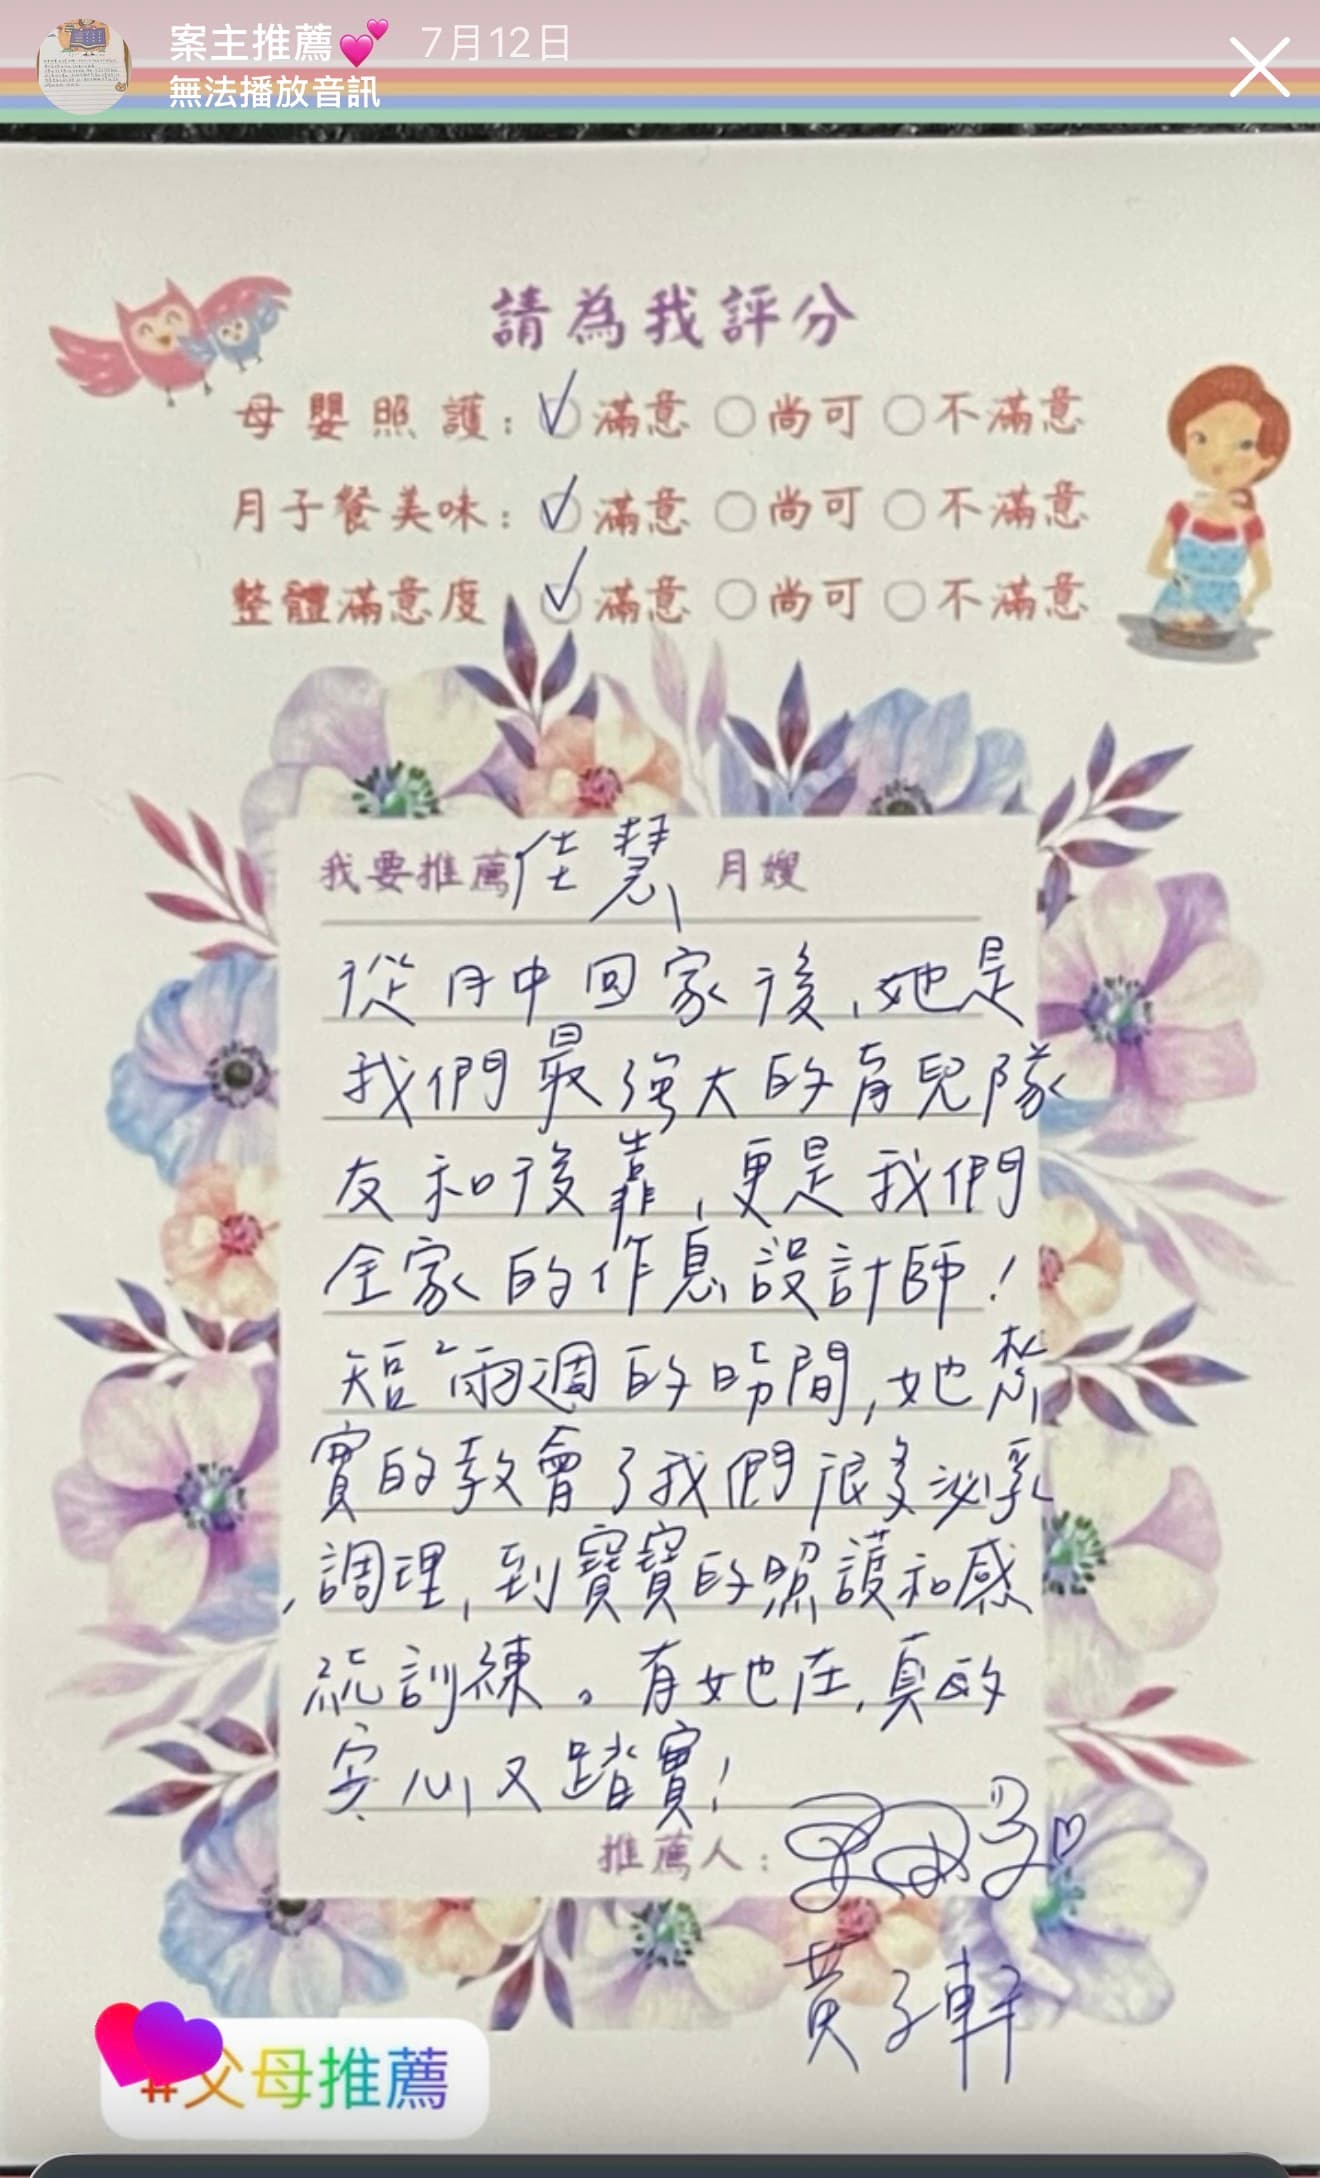 案主推薦💕 7月12日
無法播放音訊
請為我評分
母嬰照護：滿意 尚可 不滿意
月子餐美味：滿意 尚可 不滿意
整體滿意度 滿意 尚可 不滿意
我要推薦佳慧 月嫂
從月中回家後，她是
我們最強大的育兒隊
友和後靠，更是我們
全家的作息設計師！
短短兩週的時間，她紮
實的教會了我們很多泌乳
，調理，到寶寶的照護和感
統訓練。有她在，真的
安心又踏實！
推薦人：
黃子軒
#父母推薦